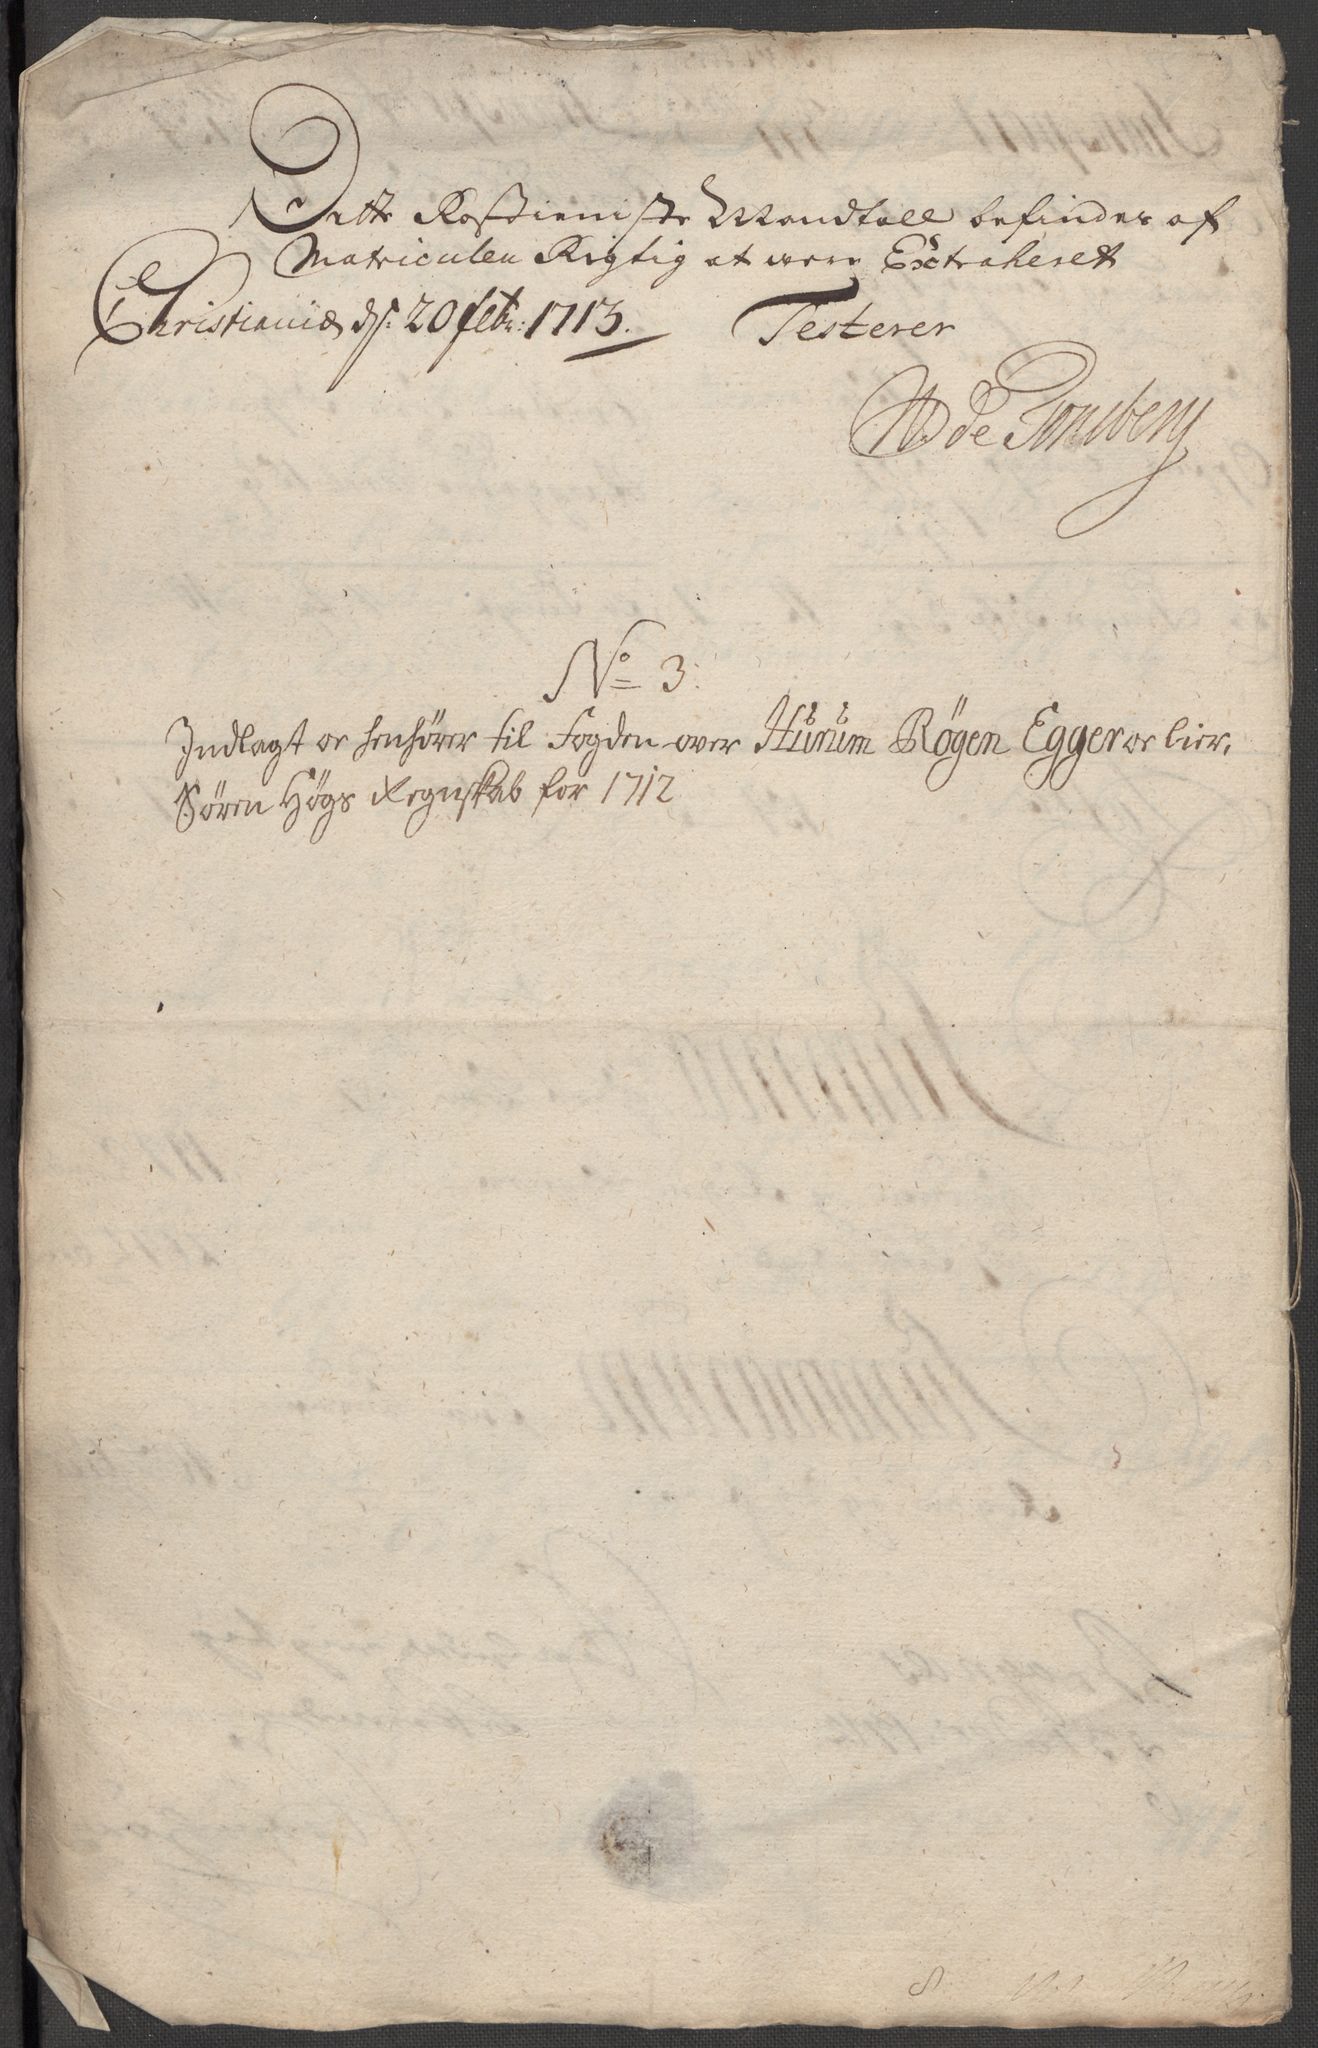 Dette Rostieniste Mandtall befindes af
Matriculen Rigtig at were Extraheret
Christiania ds: 20 febr: 1713. Testerer
de Tonsberg
No 3.
Indlagt oc henhører til Fogden over Hurum Røgen Egger oc Lier,
Søren Høgs Regnskab for 1712